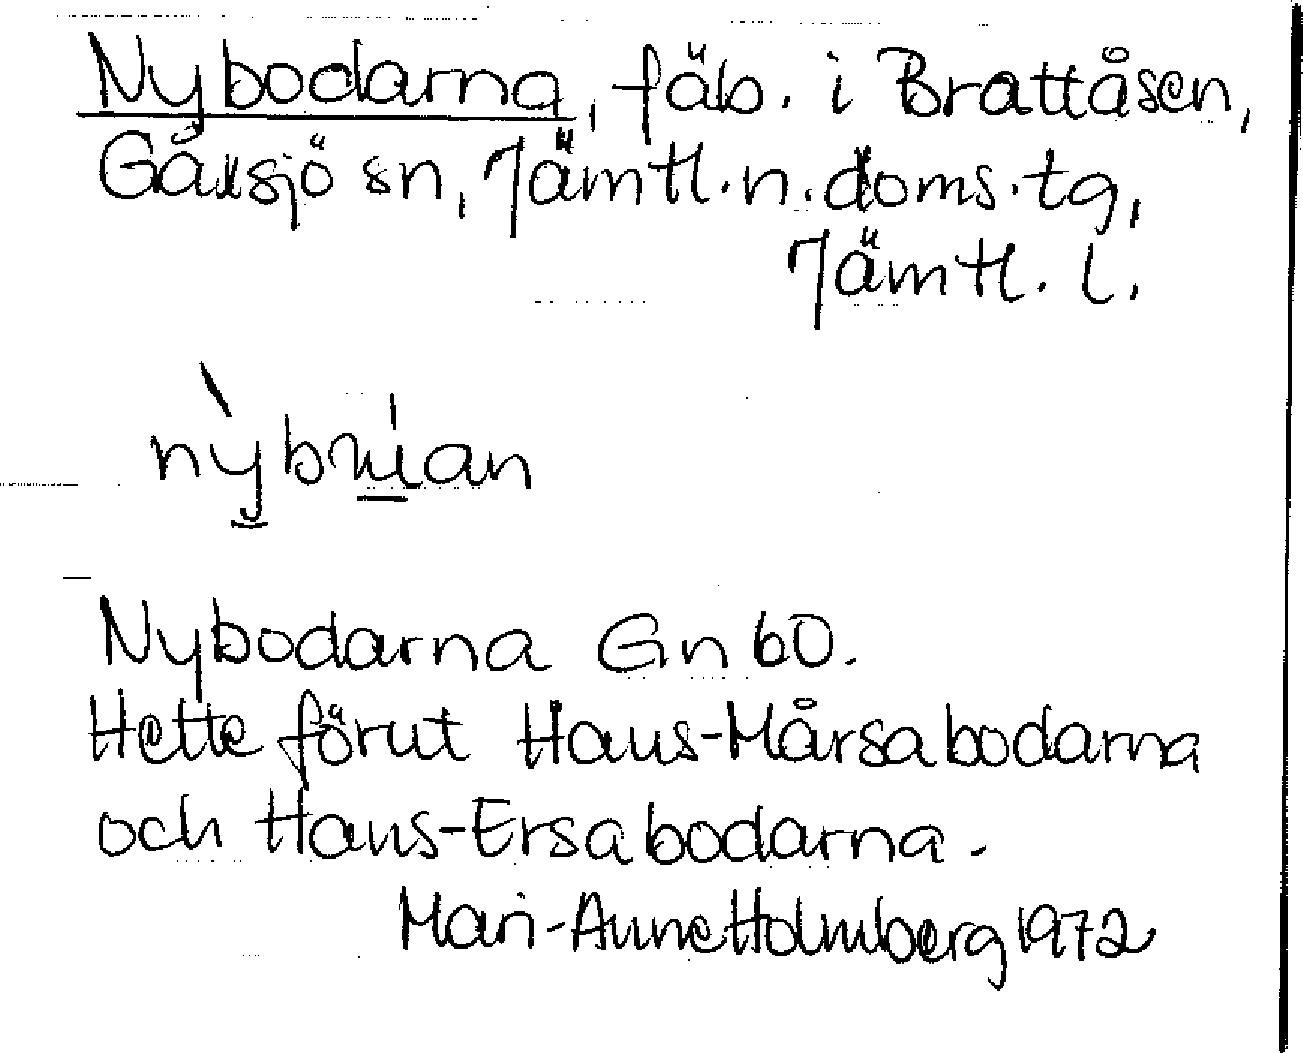 Nybodarna, fäb. i Brattåsen,
Gåxsjö sn, Jämtl. n. doms. tg,
Jämtl. l.
Nybodarna Gn 60.
Hette förut Hans-Mårsabodarna
och Hans-Ersabodarna.
Mari-Anne Holmberg 1972